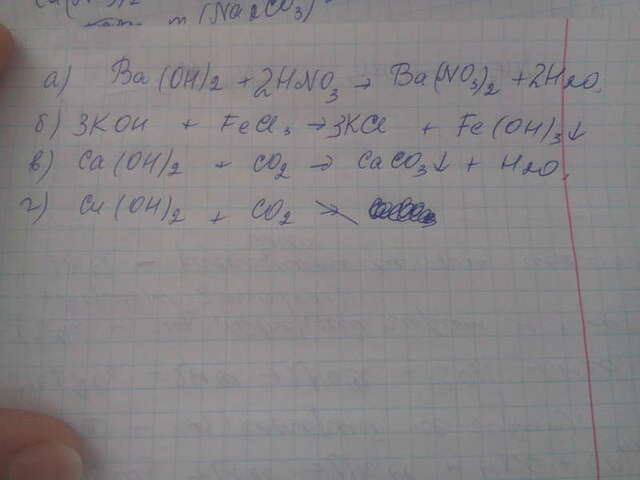 m (Na2CO3)
а) Ba(OH)2 + 2HNO3 → Ba(NO3)2 + 2H2O.
б) 3KOH + FeCl3 → 3KCl + Fe(OH)3↓
в) Ca(OH)2 + CO2 → CaCO3↓ + H2O.
г) Cu(OH)2 + CO2 ↛